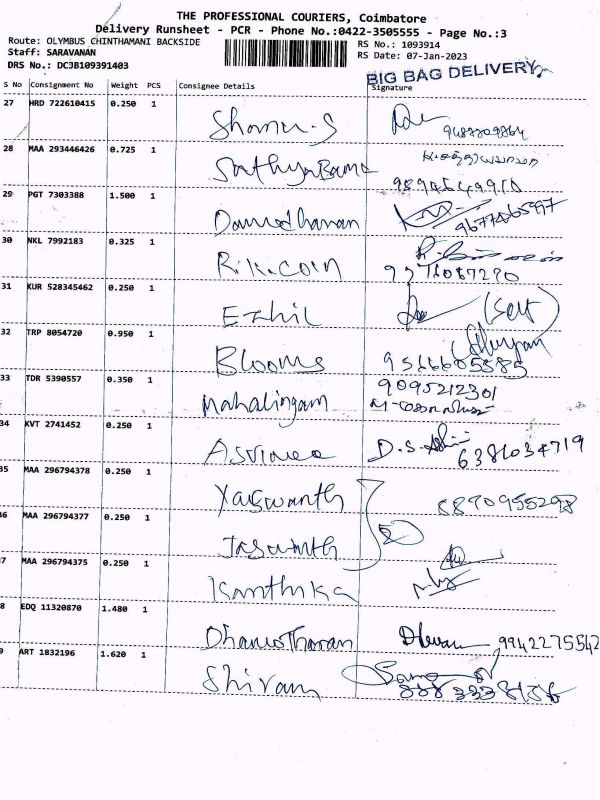 THE PROFESSIONAL COURIERS, Coimbatore
Delivery Runsheet - PCR - Phone No.:0422-3505555 - Page No.:3
Route: OLYMBUS CHINTHAMANI BACKSIDE
Staff: SARAVANAN
DRS No.: DCJB109391403
RS No.: 1093914
RS Date: 07-Jan-2023
BIG BAG DELIVERY
S No Consignment No Weight PCS Consignee Details Signature
27 HRD 722610415 0.250 1
28 MAA 293446426 0.725 1 SathyaBama
29 PGT 7303388 1.500 1 Damodharan
30 NKL 7992183 0.325 1 Rikcoin
31 KUR 528345462 0.250 1 Ezhil (Self)
32 TRP 8054720 0.950 1 Blooms 9566605585
33 TDR 5390557 0.350 1 Mahalingam 9095212301
34 KVT 2741452 0.250 1 D.S. 6381034719
35 MAA 296794378 0.250 1 Yaswanth 8870955298
6 MAA 296794377 0.250 1 Jaswanth
7 MAA 296794375 0.250 1 Kanthika
8 EDQ 11320870 1.480 1 Dhamotharan 9942275542
9 ART 1832196 1.620 1 Shivam